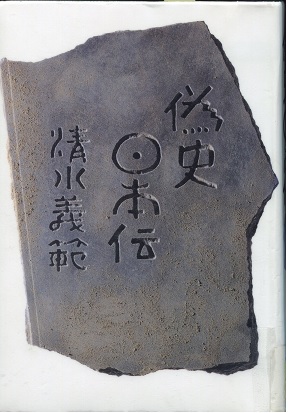 偽史
日本伝
清水義範